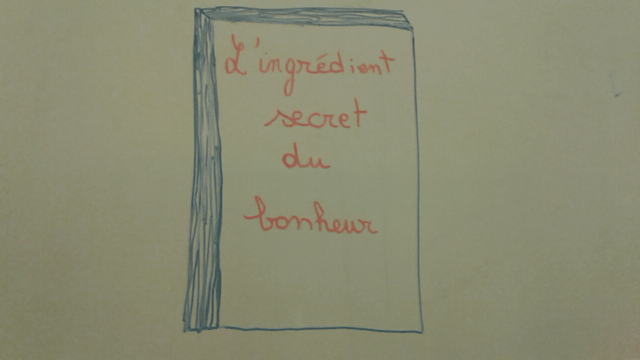 L'ingrédient
secret
du
bonheur